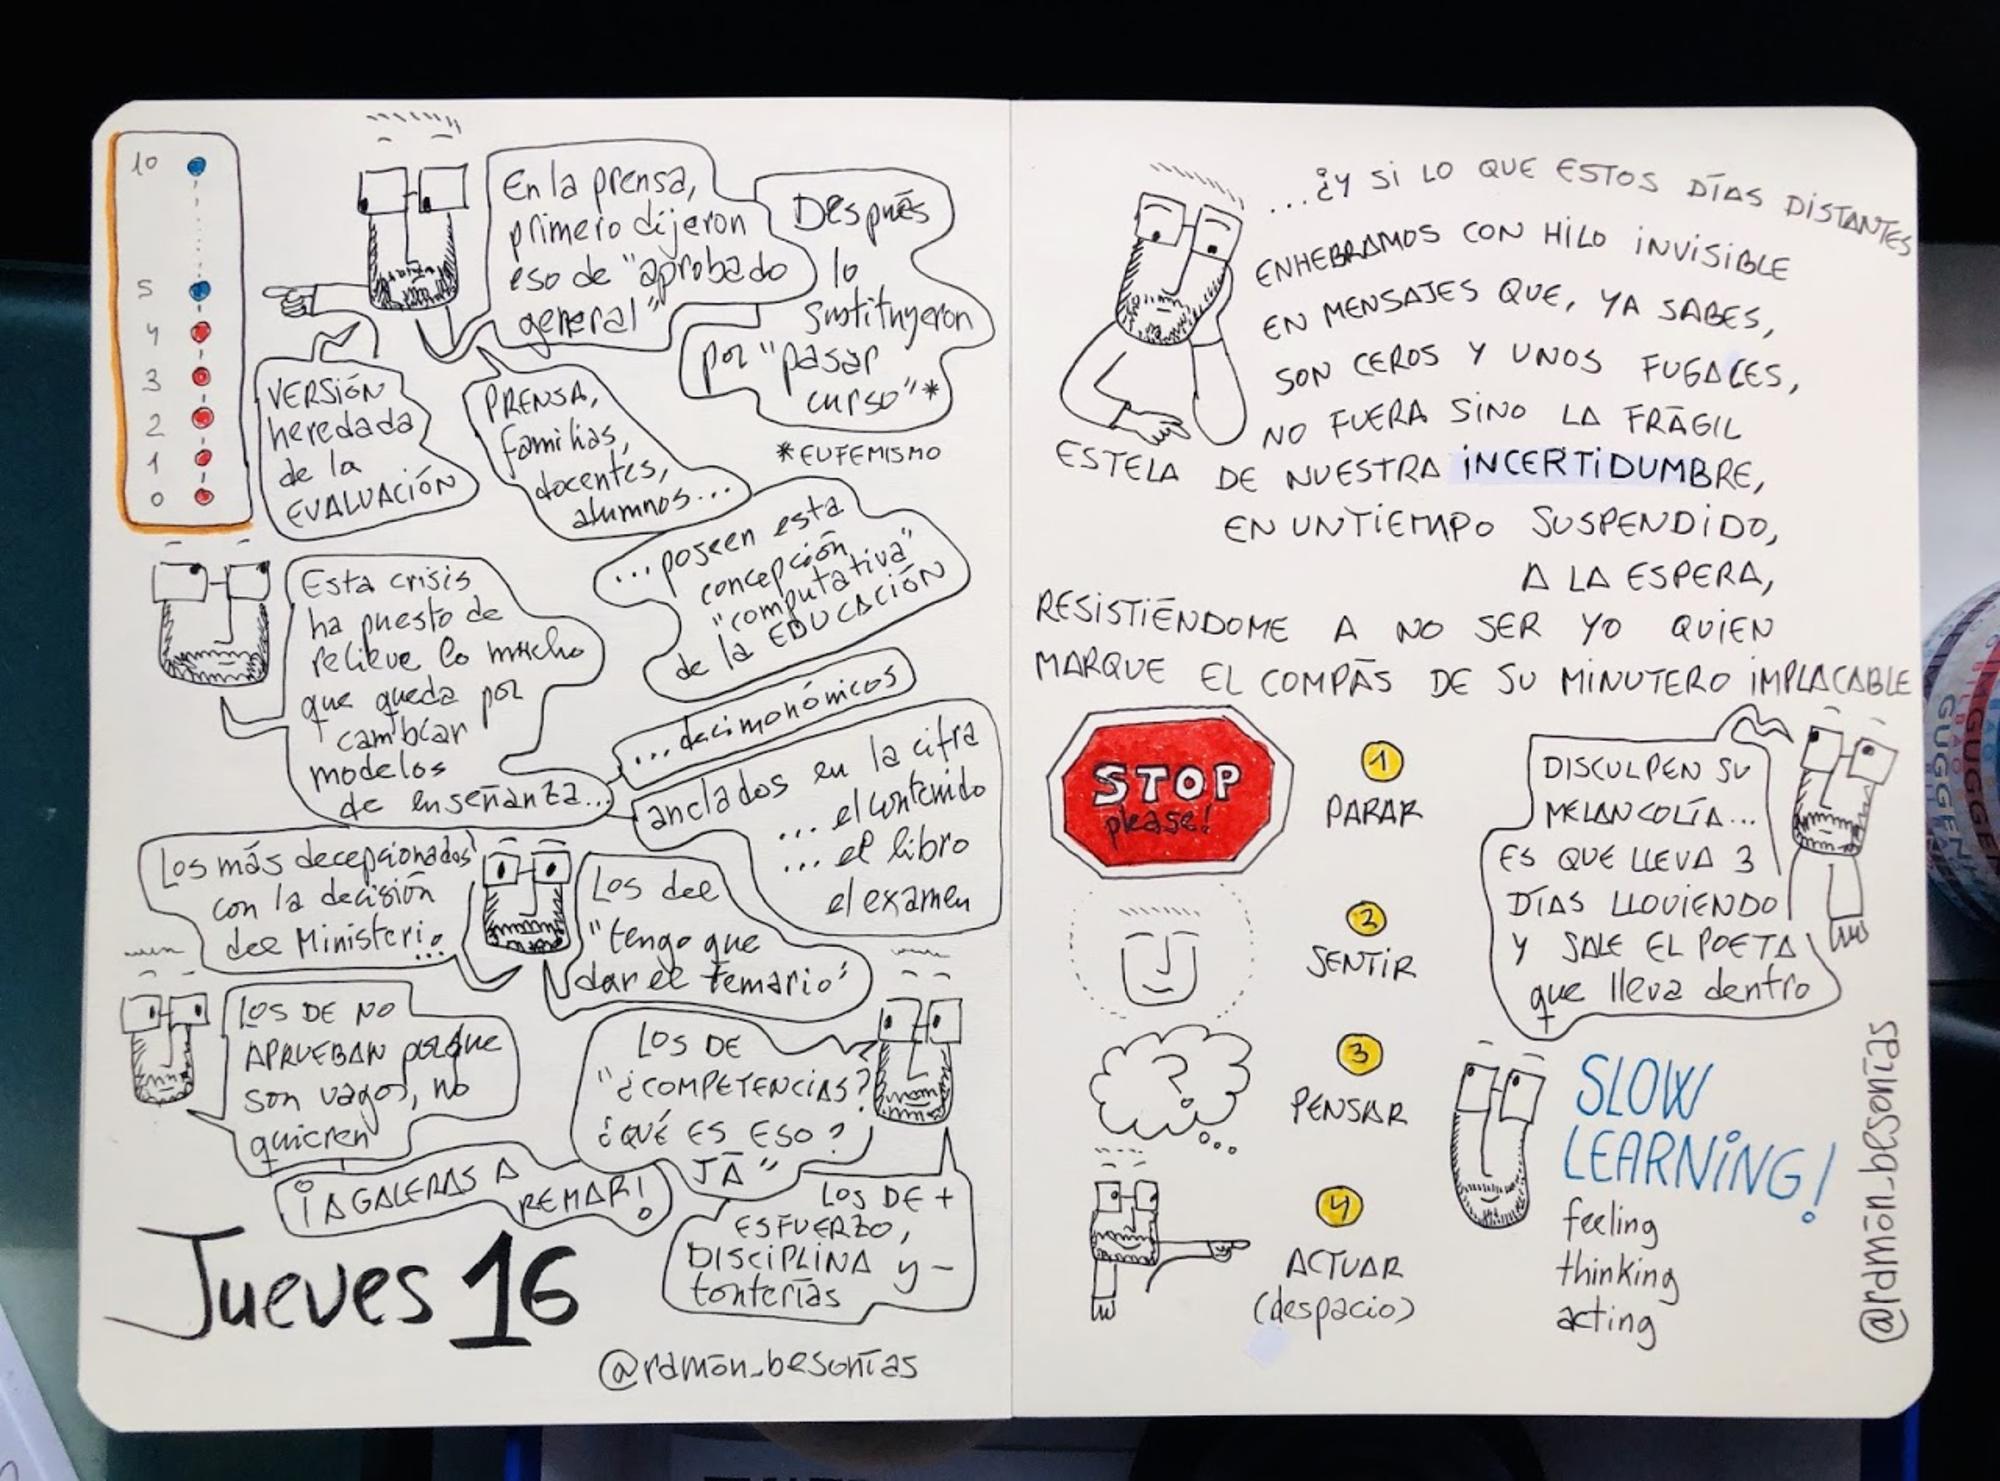 10
5
4
3
2
1
0
VERSIÓN
heredada
de la
EVALUACIÓN
En la prensa,
primero dijeron
eso de "aprobado
general"
Después
lo
sustituyeron
por "pasar
curso"*
*EUFEMISMO
PRENSA,
familias,
docentes,
alumnos...
...poseen esta
concepción
"computativa"
de la EDUCACIÓN
Esta crisis
ha puesto de
relieve lo mucho
que queda por
cambiar
modelos
de enseñanza...
...decimonómicos
anclados en la cifra
... el contenido
... el libro
el examen
Los más decepcionados
con la decisión
del Ministerio...
Los del
"tengo que
dar el temario"
LOS DE NO
APRUEBAN porque
son vagos, no
quieren
LOS DE
"¿COMPETENCIAS?
¿QUÉ ES ESO?
JÁ"
¡A GALERAS A
REMAR!
LOS DE +
ESFUERZO,
DISCIPLINA y -
tonterías
Jueves 16
@ramón_besonías
...¿Y SI LO QUE ESTOS DÍAS DISTANTES
ENHEBRAMOS CON HILO INVISIBLE
EN MENSAJES QUE, YA SABES,
SON CEROS Y UNOS FUGACES,
NO FUERA SINO LA FRÁGIL
ESTELA DE NUESTRA INCERTIDUMBRE,
EN UN TIEMPO SUSPENDIDO,
A LA ESPERA,
RESISTIÉNDOME A NO SER YO QUIEN
MARQUE EL COMPÁS DE SU MINUTERO IMPLACABLE
STOP
please!
1
PARAR
2
SENTIR
?
3
PENSAR
4
ACTUAR
(despacio)
DISCULPEN SU
MELANCOLÍA...
ES QUE LLEVA 3
DÍAS LLOVIENDO
Y SALE EL POETA
que lleva dentro
SLOW
LEARNING!
feeling
thinking
acting
@ramón_besonías
GUGGEN